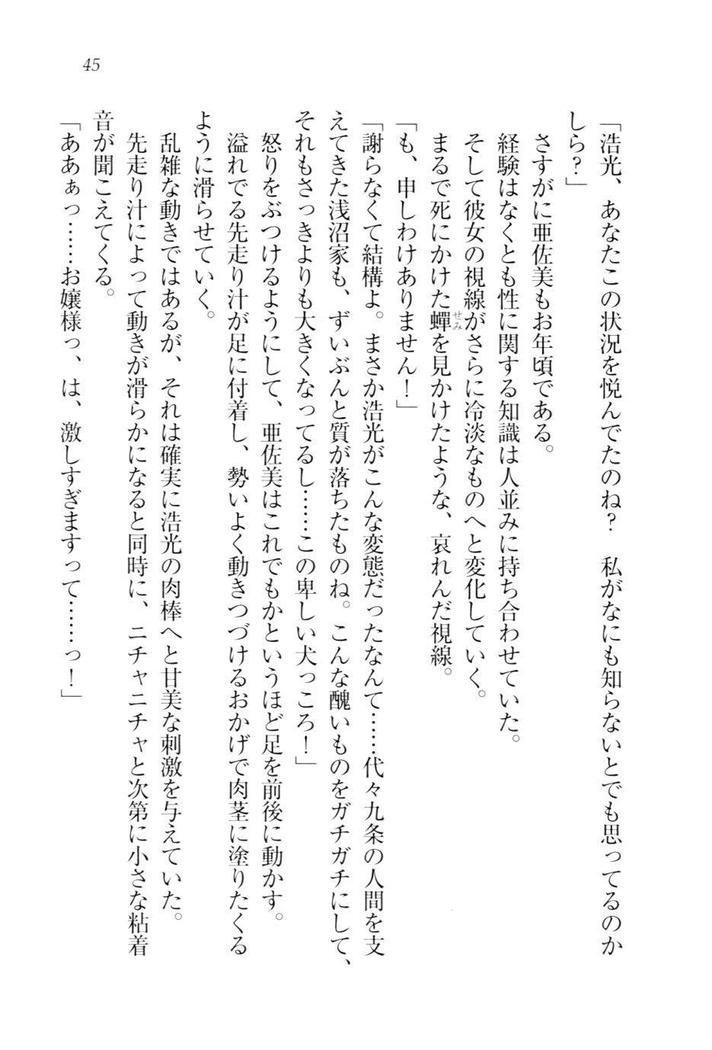 45
「浩光、あなたこの状況を悦んでたのね？　私がなにも知らないとでも思ってるのか
しら？」
さすがに亜佐美もお年頃である。
経験はなくとも性に関する知識は人並みに持ち合わせていた。
そして彼女の視線がさらに冷淡なものへと変化していく。
まるで死にかけた蟬せみを見かけたような、哀れんだ視線。
「も、申しわけありません！」
「謝らなくて結構よ。まさか浩光がこんな変態だったなんて……代々九条の人間を支
えてきた浅沼家も、ずいぶんと質が落ちたものね。こんな醜いものをガチガチにして、
それもさっきよりも大きくなってるし……この卑しい犬っころ！」
怒りをぶつけるようにして、亜佐美はこれでもかというほど足を前後に動かす。
溢れでる先走り汁が足に付着し、勢いよく動きつづけるおかげで肉茎に塗りたくる
ように滑らせていく。
乱雑な動きではあるが、それは確実に浩光の肉棒へと甘美な刺激を与えていた。
先走り汁によって動きが滑らかになると同時に、ニチャニチャと次第に小さな粘着
音が聞こえてくる。
「ああぁっ……お嬢様っ、は、激しすぎますって……っ！」